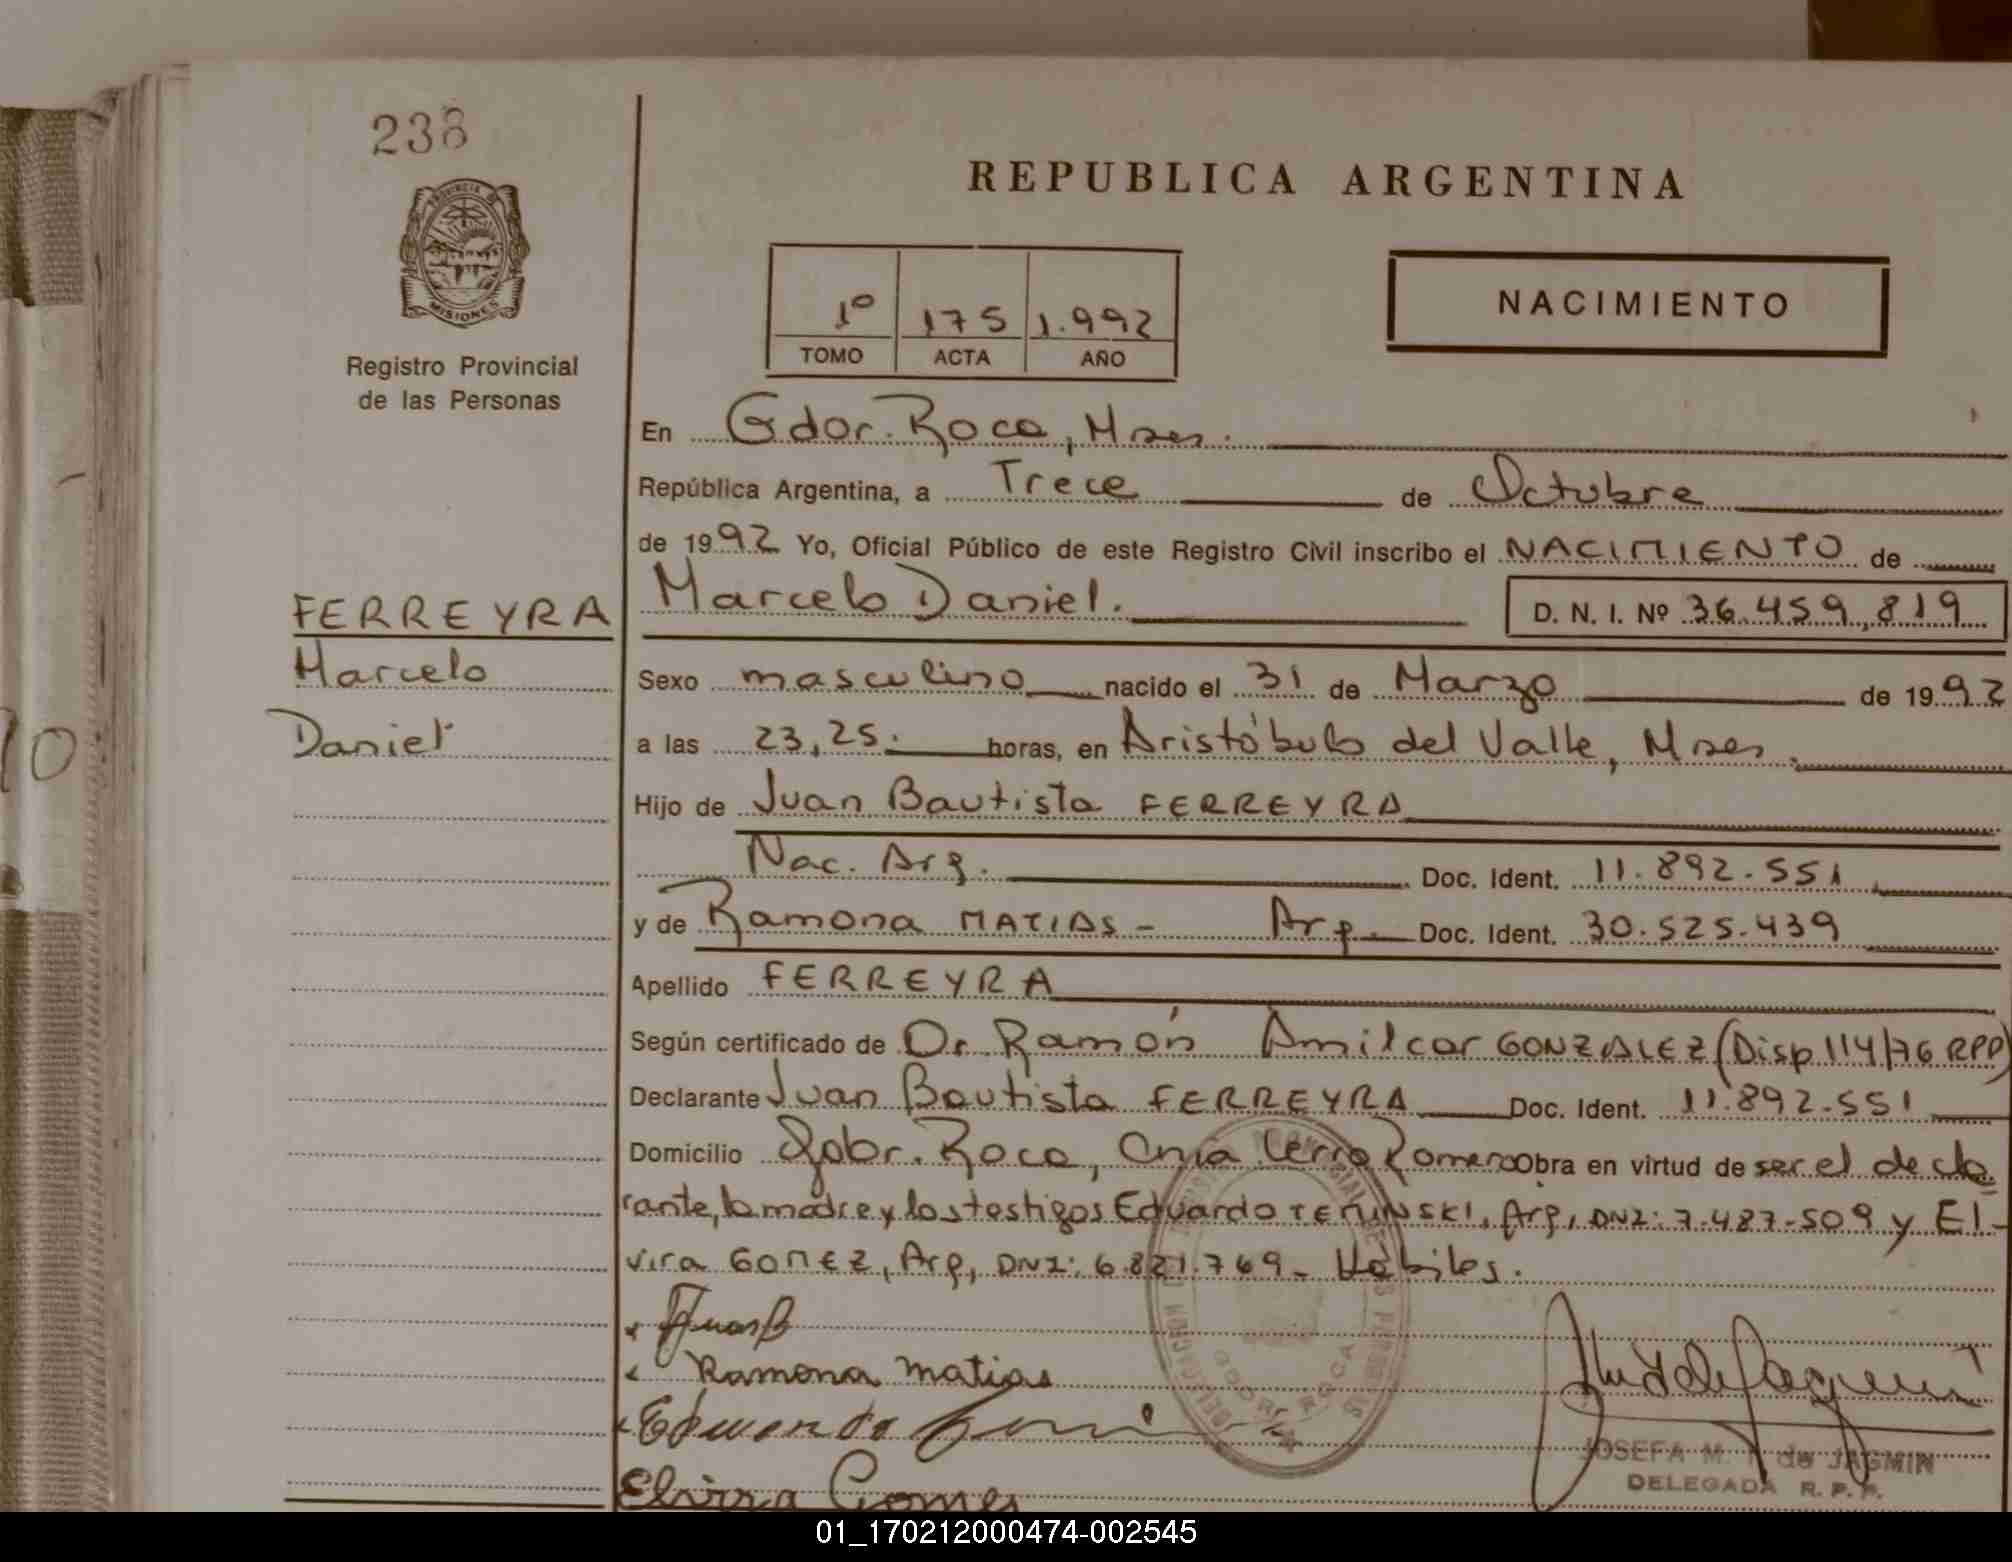 238
PROVINCIA DE
MISIONES
Registro Provincial
de las Personas
REPUBLICA ARGENTINA
1º 175 1.992
TOMO ACTA AÑO
NACIMIENTO
En Gdor. Roca, Mnes.
República Argentina, a Trece de Octubre
de 1992 Yo, Oficial Público de este Registro Civil inscribo el NACIMIENTO de
FERREYRA
Marcelo
Daniel
Marcelo Daniel.
D. N. I. Nº 36.459,819
Sexo masculino nacido el 31 de Marzo de 1992
a las 23,25. horas, en Aristóbulo del Valle, Mnes.
Hijo de Juan Bautista FERREYRA
Nac. Arg. Doc. Ident. 11.892.551
y de Ramona MATIAS - Arg. Doc. Ident. 30.525.439
Apellido FERREYRA
Según certificado de Dr. Ramón Amilcar GONZALEZ (Disp 114/76 RPP)
Declarante Juan Bautista FERREYRA Doc. Ident. 11.892.551
Domicilio Gobr. Roca, Cnia Cerro Romero Obra en virtud de ser el decla
rante, la madre y los testigos Eduardo Arg, DNI: 7.487.509 y El-
vira GOMEZ, Arg, DNI: 6.821.769 - Hábiles.
Juan B
Ramona Matias
Eduardo
Elvira Gomes
GDOR. ROCA
JOSEFA M. de JAGMIN
DELEGADA R. P. P.
01_170212000474-002545